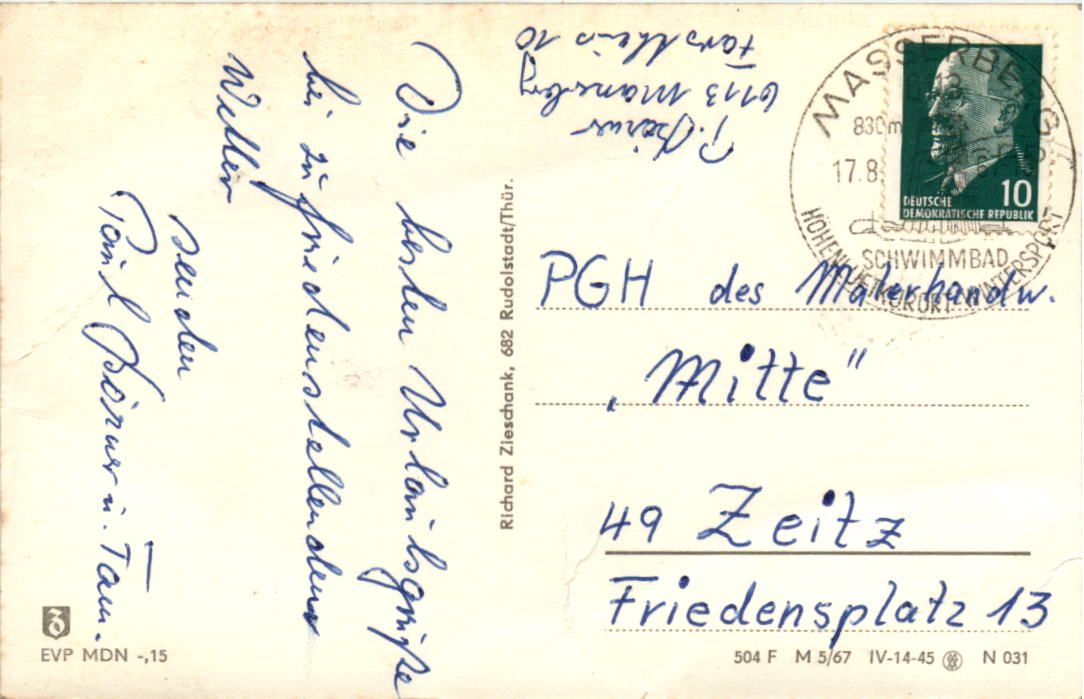 Die besten Urlaubsgrüße
bei zufriedenstellendem
Wetter
senden
Paul Börner u. Fam.
P. Börner
6113 Masserberg
Forsthaus 10
Richard Zieschank, 682 Rudolstadt/Thür.
MASSERBERG/
830 m
17.8.
10
DEUTSCHE
DEMOKRATISCHE REPUBLIK
SCHWIMMBAD
WINTERSPORT
PGH des Malerhandw.
„Mitte"
49 Zeitz
Friedensplatz 13
EVP MDN -,15
504 F M 5/67 IV-14-45 N 031